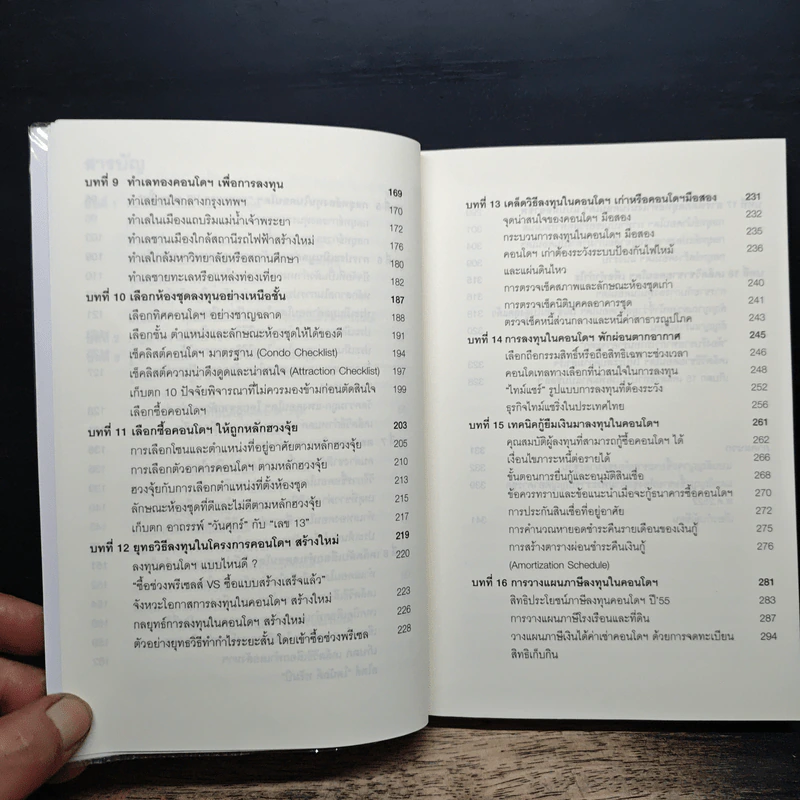 บทที่ 9 ทำเลทองคอนโดฯ เพื่อการลงทุน 169
ทำเลย่านใจกลางกรุงเทพฯ 170
ทำเลในเมืองแถบริมแม่น้ำเจ้าพระยา 172
ทำเลชานเมืองใกล้สถานีรถไฟฟ้าสร้างใหม่ 176
ทำเลใกล้มหาวิทยาลัยหรือสถานศึกษา 180
ทำเลชายทะเลหรือแหล่งท่องเที่ยว 182
บทที่ 10 เลือกห้องชุดลงทุนอย่างเหนือชั้น 187
เลือกทิศคอนโดฯ อย่างชาญฉลาด 188
เลือกชั้น ตำแหน่งและลักษณะห้องชุดให้ได้ของดี 191
เช็คลิสต์คอนโดฯ มาตรฐาน (Condo Checklist) 194
เช็คลิสต์ความน่าดึงดูดและน่าสนใจ (Attraction Checklist) 197
เก็บตก 10 ปัจจัยพิจารณาที่ไม่ควรมองข้ามก่อนตัดสินใจ 199
เลือกซื้อคอนโดฯ
บทที่ 11 เลือกซื้อคอนโดฯ ให้ถูกหลักฮวงจุ้ย 203
การเลือกโซนและตำแหน่งที่อยู่อาศัยตามหลักฮวงจุ้ย 205
การเลือกตัวอาคารคอนโดฯ ตามหลักฮวงจุ้ย 210
ฮวงจุ้ยกับการเลือกตำแหน่งที่ตั้งห้องชุด 213
ลักษณะห้องชุดที่ดีและไม่ดีตามหลักฮวงจุ้ย 215
เก็บตก อาถรรพ์ "วันศุกร์" กับ "เลข 13" 217
บทที่ 12 ยุทธวิธีลงทุนในโครงการคอนโดฯ สร้างใหม่ 219
ลงทุนคอนโดฯ แบบไหนดี ? 220
"ซื้อช่วงพรีเซลส์ VS ซื้อแบบสร้างเสร็จแล้ว"
จังหวะโอกาสการลงทุนในคอนโดฯ สร้างใหม่ 223
กลยุทธ์การลงทุนในคอนโดฯ สร้างใหม่ 226
ตัวอย่างยุทธวิธีทำกำไรระยะสั้น โดยเข้าซื้อช่วงพรีเซล 228
บทที่ 13 เคล็ดวิธีลงทุนในคอนโดฯ เก่าหรือคอนโดฯมือสอง 231
จุดน่าสนใจของคอนโดฯ มือสอง 232
กระบวนการลงทุนในคอนโดฯ มือสอง 235
คอนโดฯ เก่าต้องระวังระบบป้องกันไฟไหม้ 236
และแผ่นดินไหว
การตรวจเช็คสภาพและลักษณะห้องชุดเก่า 240
การตรวจเช็คนิติบุคคลอาคารชุด 241
ตรวจเช็คหนี้ส่วนกลางและหนี้ค่าสาธารณูปโภค 243
บทที่ 14 การลงทุนในคอนโดฯ พักผ่อนตากอากาศ 245
เลือกถือกรรมสิทธิ์หรือถือสิทธิเฉพาะช่วงเวลา 246
คอนโดเทลทางเลือกที่น่าสนใจในการลงทุน 248
"ไทม์แชร์" รูปแบบการลงทุนที่ต้องระวัง 252
ธุรกิจไทม์แชริ่งในประเทศไทย 256
บทที่ 15 เทคนิคกู้ยืมเงินมาลงทุนในคอนโดฯ 261
คุณสมบัติผู้ลงทุนที่สามารถกู้ซื้อคอนโดฯ ได้ 262
เงื่อนไขภาระหนี้ต่อรายได้ 266
ขั้นตอนการยื่นกู้และอนุมัติสินเชื่อ 268
ข้อควรทราบและข้อแนะนำเมื่อจะกู้ธนาคารซื้อคอนโดฯ 270
การประกันสินเชื่อที่อยู่อาศัย 272
การคำนวณหายอดชำระรายเดือนของเงินกู้ 275
การสร้างตารางผ่อนชำระคืนเงินกู้ 276
(Amortization Schedule)
บทที่ 16 การวางแผนภาษีลงทุนในคอนโดฯ 281
สิทธิประโยชน์ภาษีลงทุนคอนโดฯ ปี'55 283
การวางแผนภาษีโรงเรือนและที่ดิน 287
วางแผนภาษีเงินได้ค่าเช่าคอนโดฯ ด้วยการจดทะเบียน 294
สิทธิเก็บกิน